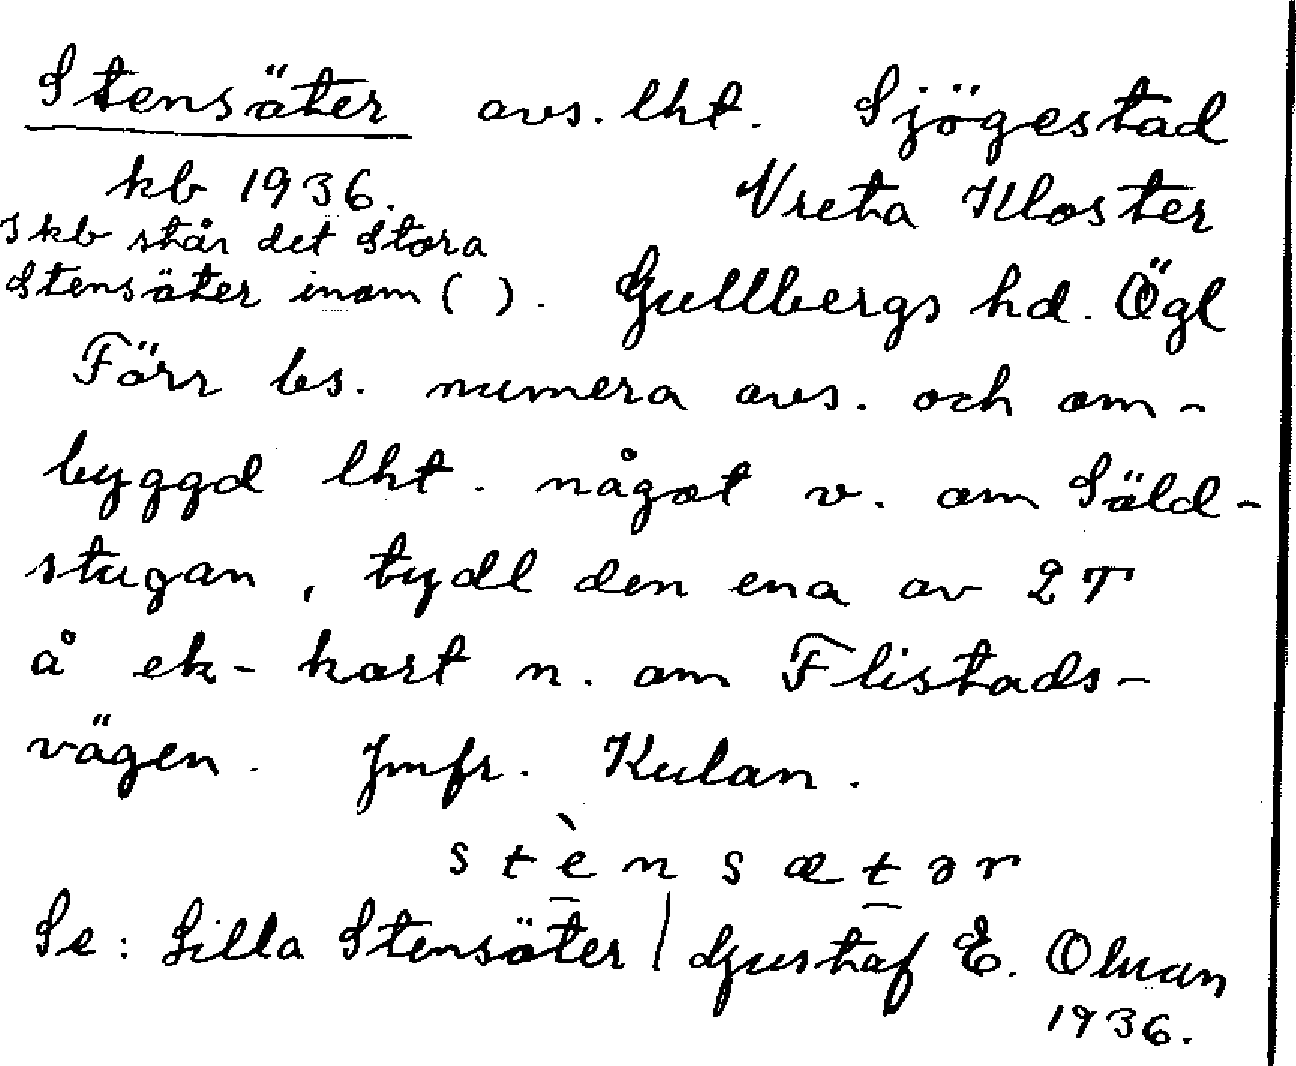 Stensäter avs. lht. Sjögestad
kb 1936. Vreta Kloster
I kb står det Stora
Stensäter inom ( ). Gullbergs hd. Ögl
Förr bs. numera avs. och om-
byggd lht. något v. om Säld-
stugan, tydl den ena av 2 T
å ek-kart n. om Flistads-
vägen. Jmfr. Kulan.
stènsætər
Se: Lilla Stensäter / Gustaf E. Olman
1936.